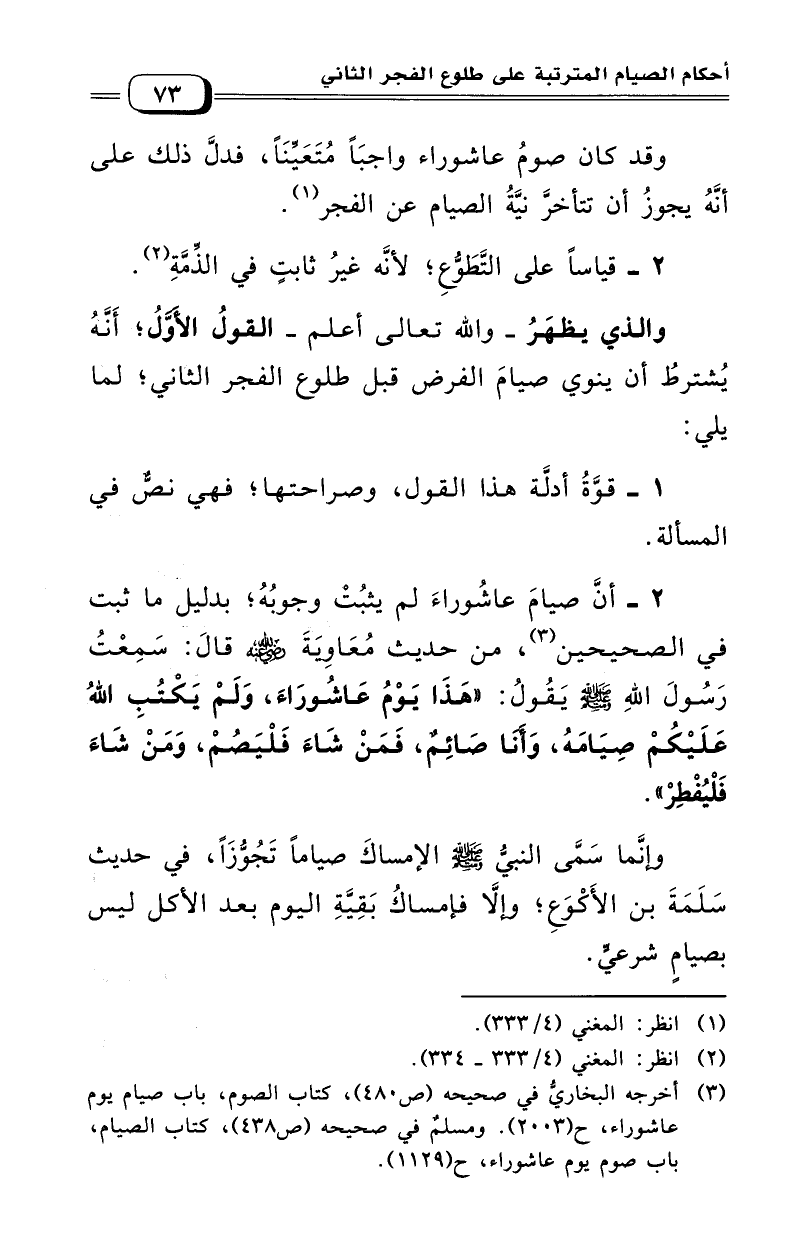 أحكام الصيام المترتبة على طلوع الفجر الثاني
٧٣
وقد كان صومُ عاشوراء واجبَاً مُتَعَيِّنَاً، فدلَّ ذلك على
أنَّهُ يجوزُ أن تتأخرَّ نيَّةُ الصيام عن الفجر(١).
٢ ـ قياساً على التَّطَوُّعِ؛ لأنَّه غيرُ ثابتٍ في الذِّمَّةِ(٢).
والذي يظهَرُ ـ والله تعالى أعلم ـ القولُ الأوَّلُ؛ أنَّهُ
يُشترطُ أن ينوي صيامَ الفرض قبل طلوع الفجر الثاني؛ لما
يلي:
١ ـ قوَّةُ أدلَّة هذا القول، وصراحتها؛ فهي نصٌّ في
المسألة.
٢ ـ أنَّ صيامَ عاشُوراءَ لم يثبُتْ وجوبُهُ؛ بدليل ما ثبت
في الصحيحين(٣)، من حديث مُعَاوِيَةَ رضي الله عنه قالَ: سَمِعْتُ
رَسُولَ اللهِ ﷺ يَقُولُ: «هَذَا يَوْمُ عَاشُورَاءَ، وَلَمْ يَكْتُبِ اللهُ
عَلَيْكُمْ صِيَامَهُ، وَأَنَا صَائِمٌ، فَمَنْ شَاءَ فَلْيَصُمْ، وَمَنْ شَاءَ
فَلْيُفْطِرْ».
وإنَّما سَمَّى النبيُّ ﷺ الإمساكَ صياماً تَجُوُّزَاً، في حديث
سَلَمَةَ بن الأَكْوَعِ؛ وإلَّا فإمساكُ بَقِيَّةِ اليوم بعد الأكل ليس
بصيامٍ شرعيٍّ.
(١) انظر: المغني (٤/ ٣٣٣).
(٢) انظر: المغني (٤/ ٣٣٣ ـ ٣٣٤).
(٣) أخرجه البخاريُّ في صحيحه (ص٤٨٠)، كتاب الصوم، باب صيام يوم
عاشوراء، ح(٢٠٠٣). ومسلمٌ في صحيحه (ص٤٣٨)، كتاب الصيام،
باب صوم يوم عاشوراء، ح(١١٢٩).